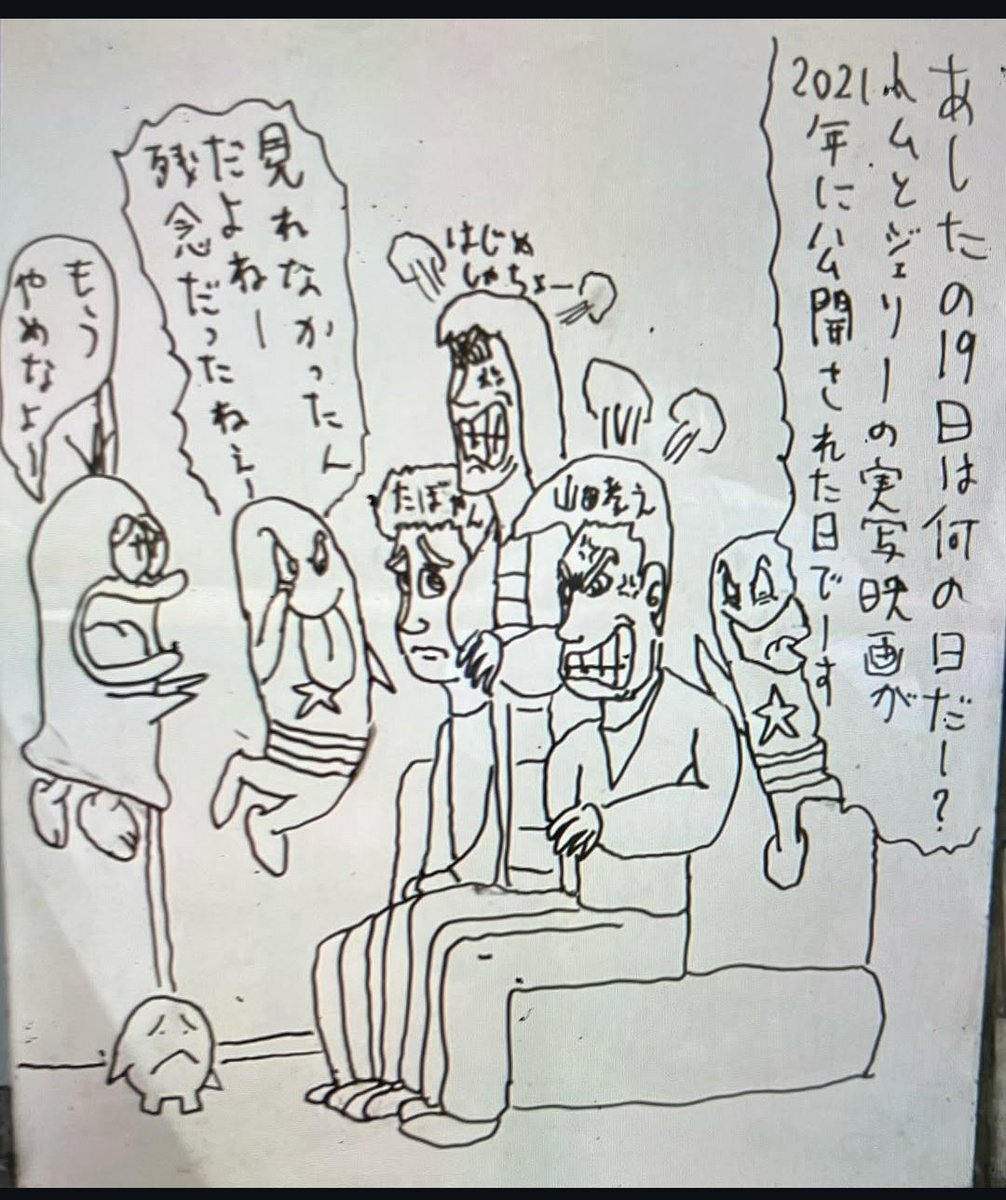 あしたの19日は何の日だー?
トムとジェリーの実写映画が
2021年に公開された日でーす
はじめ
しゃちょー
山田孝之
たぼやん
見れなかったん
だよねー
残念だったねぇー
もう
やめなよー